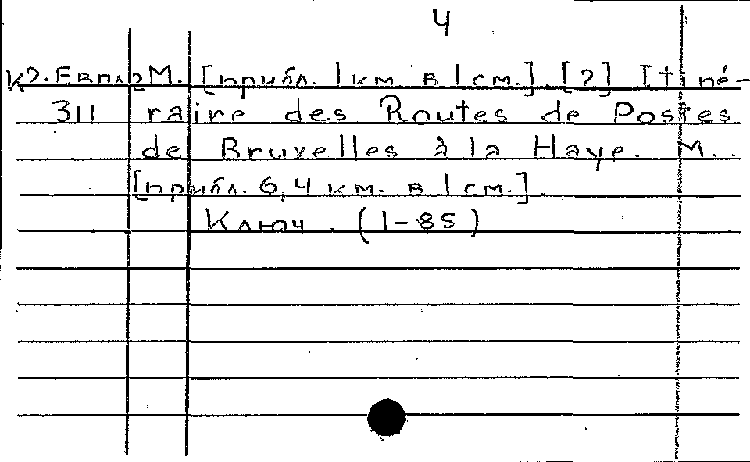 4
К2.Евпл2 М. [прибл. 1 км в 1 см.] [2] Itiné-
311 raire des Routes de Postes
de Bruxelles à la Haye. М..
[прибл. 6,4 км. в 1 см.].
Ключ. (1-85)